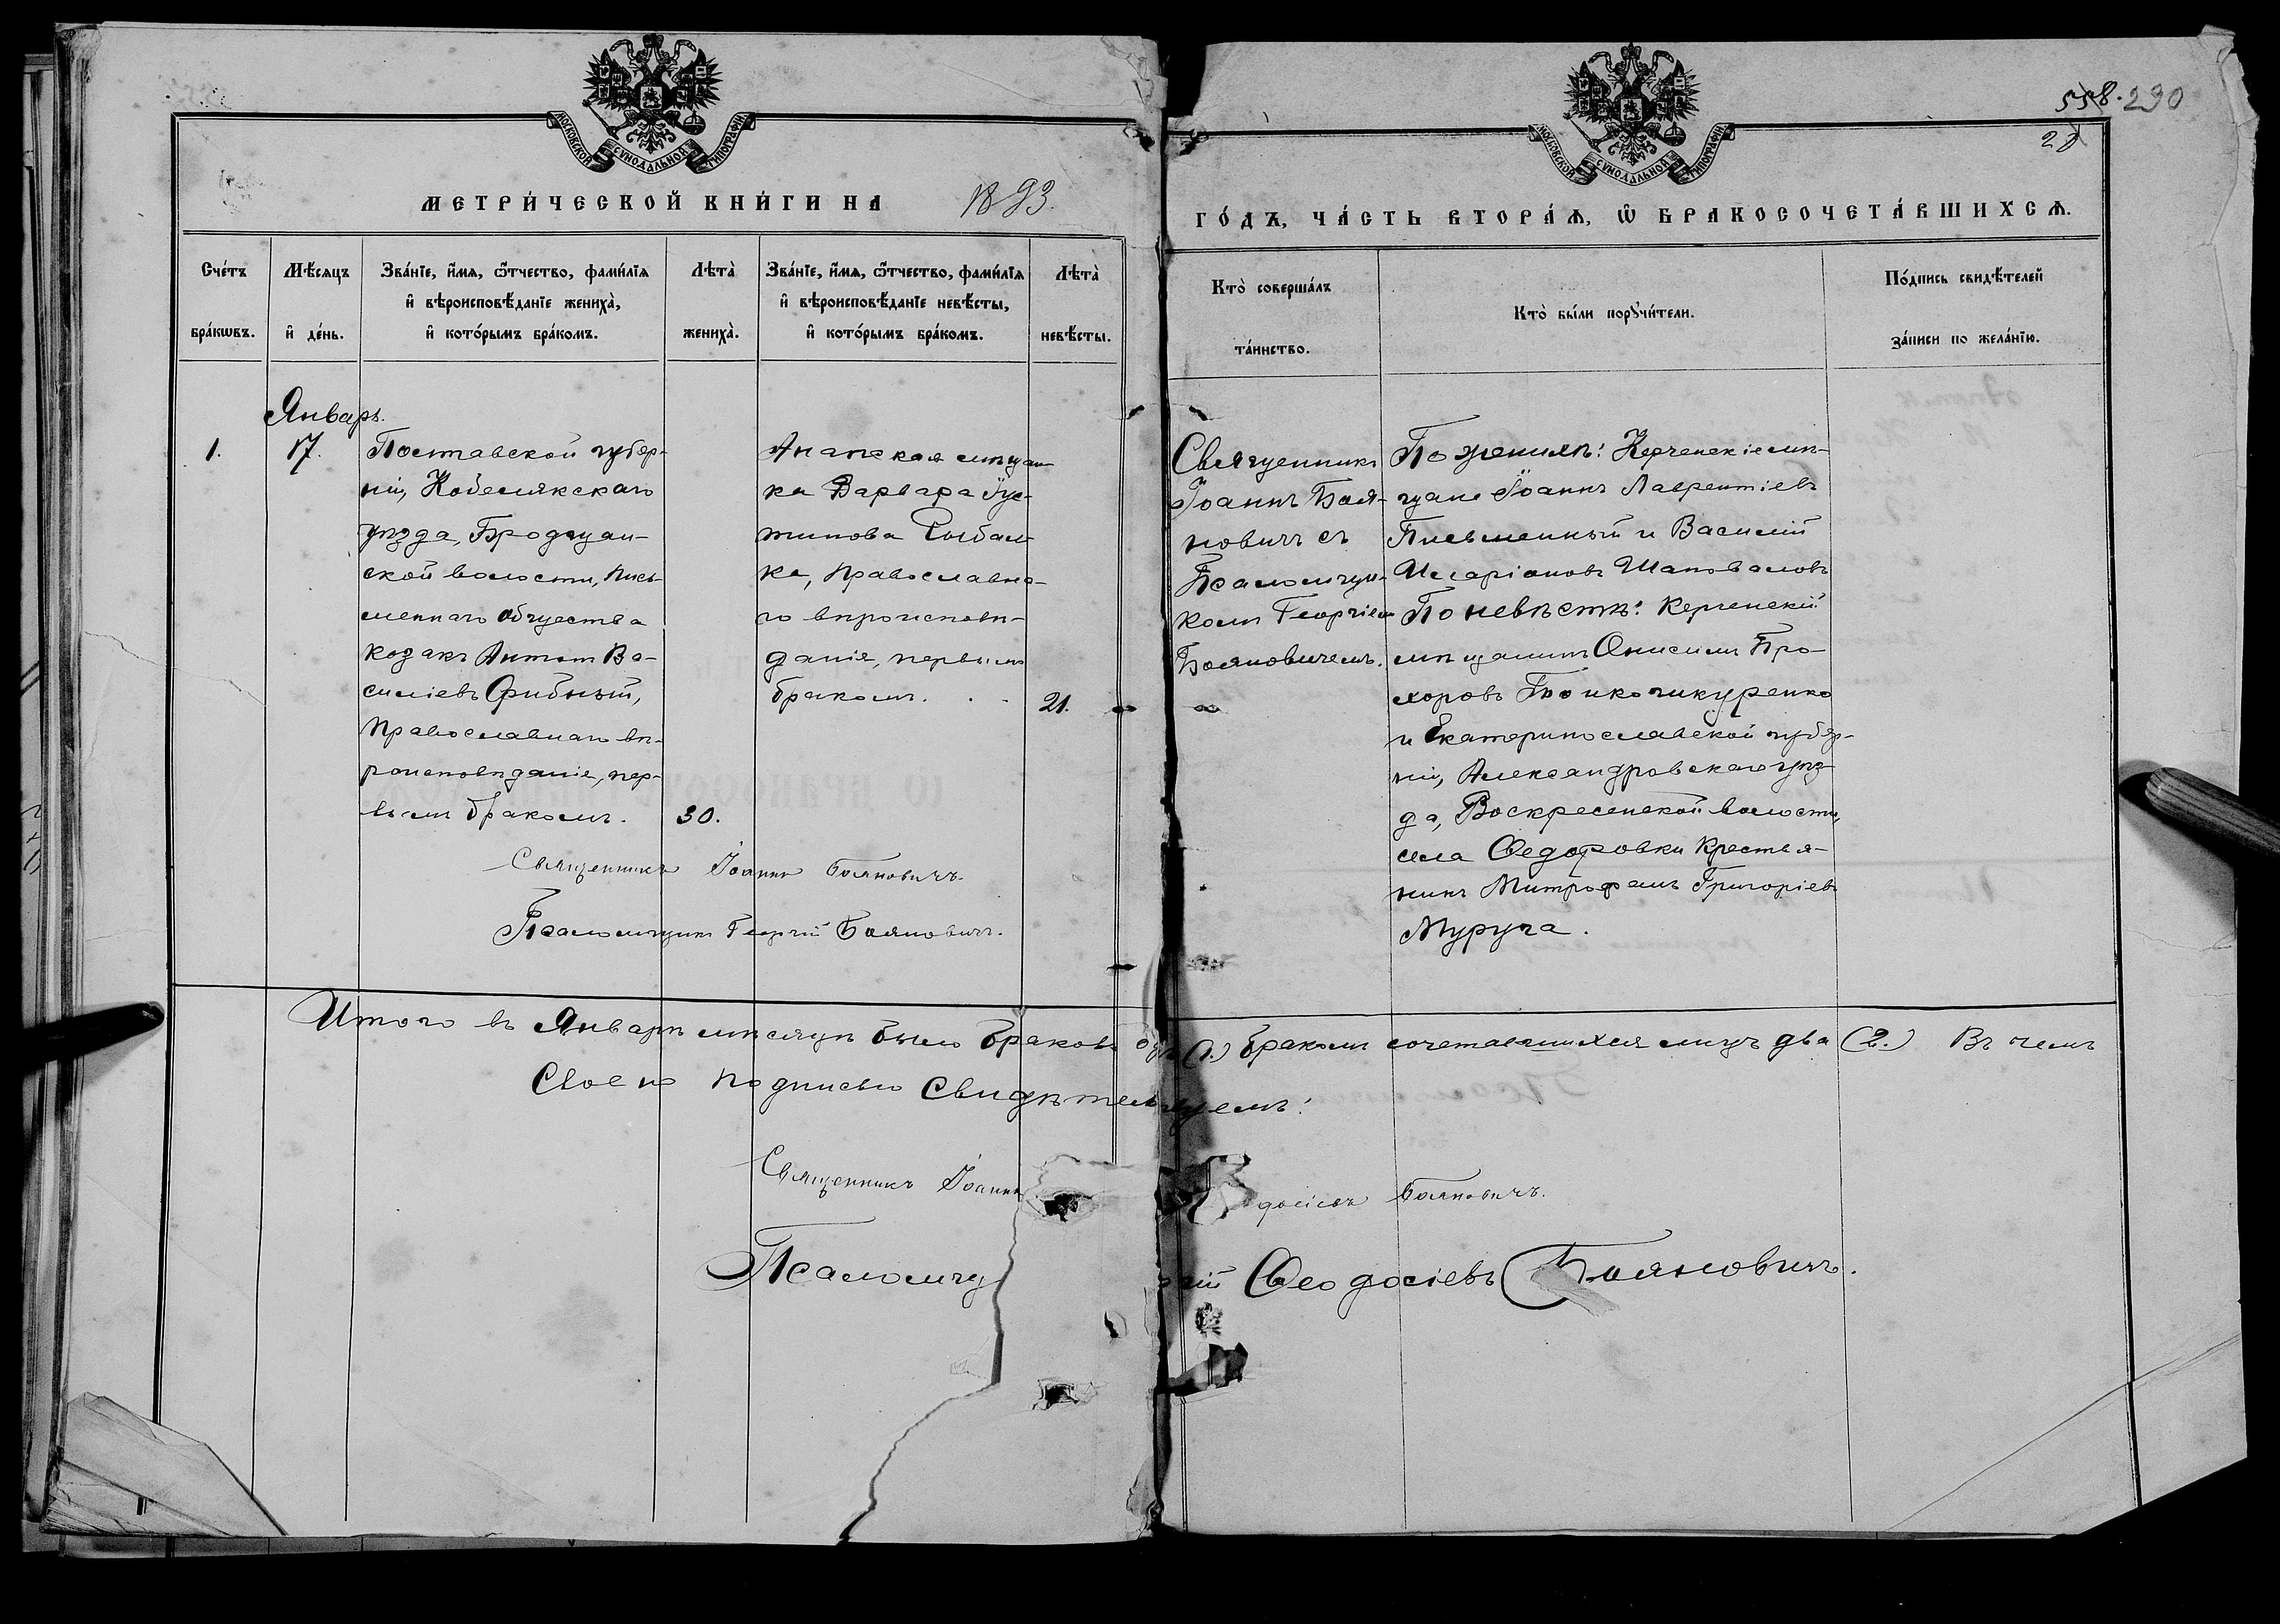 558. 290
28
МОСКОВСКОЙ СУНОДАЛЬНОЙ ТИПОГРАФІИ
МОСКОВСКОЙ СУНОДАЛЬНОЙ ТИПОГРАФІИ
МЕТРИ́ЧЕСКОЙ КНИ́ГИ НА 1893.
ГО́ДЪ, ЧА́СТЬ ВТОРА́Ѧ, Ѡ҆ БРАКОСОЧЕТА́ВШИХСѦ.
Сче́тъ
бра́кѡвъ.
Мѣ́сяцъ
и҆ де́нь.
Зва́нїе, и҆́мѧ, ѻ҆́тчество, фами́лїѧ
и҆ вѣроисповѣ́данїе жениха̀,
и҆ кото́рымъ бра́комъ.
Лѣта̀
жениха̀.
Зва́нїе, и҆́мѧ, ѻ҆́тчество, фами́лїѧ
и҆ вѣроисповѣ́данїе невѣ́сты,
и҆ кото́рымъ бра́комъ.
Лѣта̀
невѣ́сты.
Кто̀ соверша́лъ
та́инство.
Кто̀ бы́ли порꙋчи́тели.
По́дпись свидѣ́телей
за́писи по жела́нїю.
Январь.
1.
17.
Полтавской губер-
ніи, Кобелякскаго
уѣзда, Бродщан-
ской волости, Пись-
меннаго общества
козакъ Антонъ Ва-
силіевъ
Православнаго вѣ-
роисповѣданія, пер-
вымъ бракомъ.
30.
Анапская мѣщан-
ка Варвара Іус-
тинова Рыбал-
ка, Православна-
го вѣроисповѣ-
данія, первымъ
бракомъ.
21.
Священникъ
Іоаннъ Боя-
новичъ съ
Псаломщи-
комъ Георгіемъ
Бояновичемъ.
По женихѣ: Керченскіе мѣ-
щане Іоаннъ Лаврентіевъ
Письменный и Василій
Иларіоновъ Шаповаловъ
По невѣстѣ: Керченскій
мѣщанинъ Онисимъ Про-
хоровъ
и Екатеринославской губер-
ніи, Александровскаго уѣз-
да, Воскресенской волости,
села Ѳедоровки крестья-
нинъ Митрофанъ Григоріевъ
Муруга.
Священникъ Іоаннъ Бояновичъ.
Псаломщикъ Георгій Бояновичъ.
Итого въ Январѣ мѣсяцѣ было браковъ (1.) бракомъ сочетавшихся лицъ два (2.) Въ чемъ
Своею подписью Свидѣтельствуемъ:
Священникъ Іоаннъ досіевъ Бояновичъ.
Псаломщ гій Ѳеодосіевъ Бояновичъ.